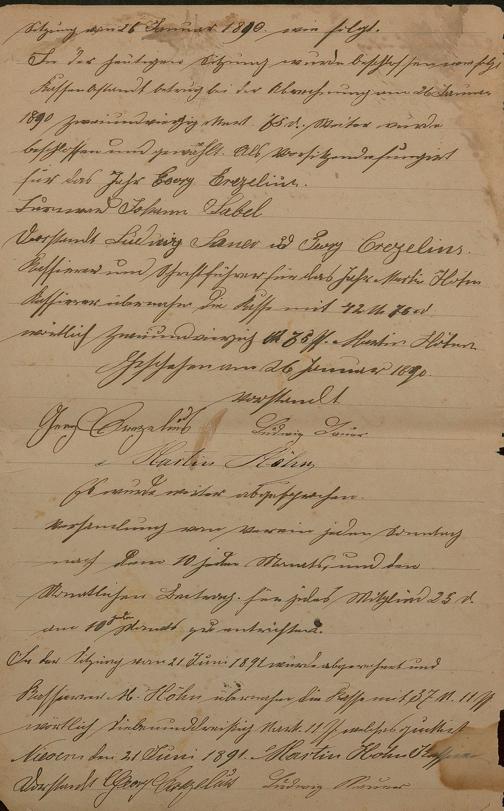 Sitzung vom 26 Januar 1890. wie folgt.
In der heutigen Sitzung wurde beschlossen
Kassenbestand betrug bei der Abrechnung am 26 Januar
1890 zweiundvierzig Mark 75 d. Weiter wurde
beschlossen und gewählt. Als Vorsitzende fungirt
für das Jahr Georg Crezelius.
Turnwart Johann Sabel
Vorstandt Ludwig Sauer u Georg Crezelius.
Kassierer und Schriftführer für das Jahr Martin Höhn
Kassierer übernahm die Kasse mit 42 M 75 d
wörtlich zweiundvierzig M 75 Pf. Martin Höhn
Geschehen am 26 Januar 1890.
Vorstandt
Georg Crezelius Ludwig Sauer
Martin Höhn
Es wurde weiter abgesprochen.
Versamlung vom Verein jeden Sonntag
nach dem 10 jeden Monats, und den
Monatlichen Beitrag. für jedes Mitglied 25 d.
am 10 ten Monats zu entrichten.
In der Sitzung vom 21 Juni 1891 wurde abgerechnet und
Kassierer M. Höhn übernahm die Kasse mit 37 M. 11 Pf
wörtlich siebenunddreißig Mark. 11 Pf welches quittirt
den 21 Juni 1891. Martin Höhn Kassierer
Vorstandt Georg Crezelius Ludwig Sauer